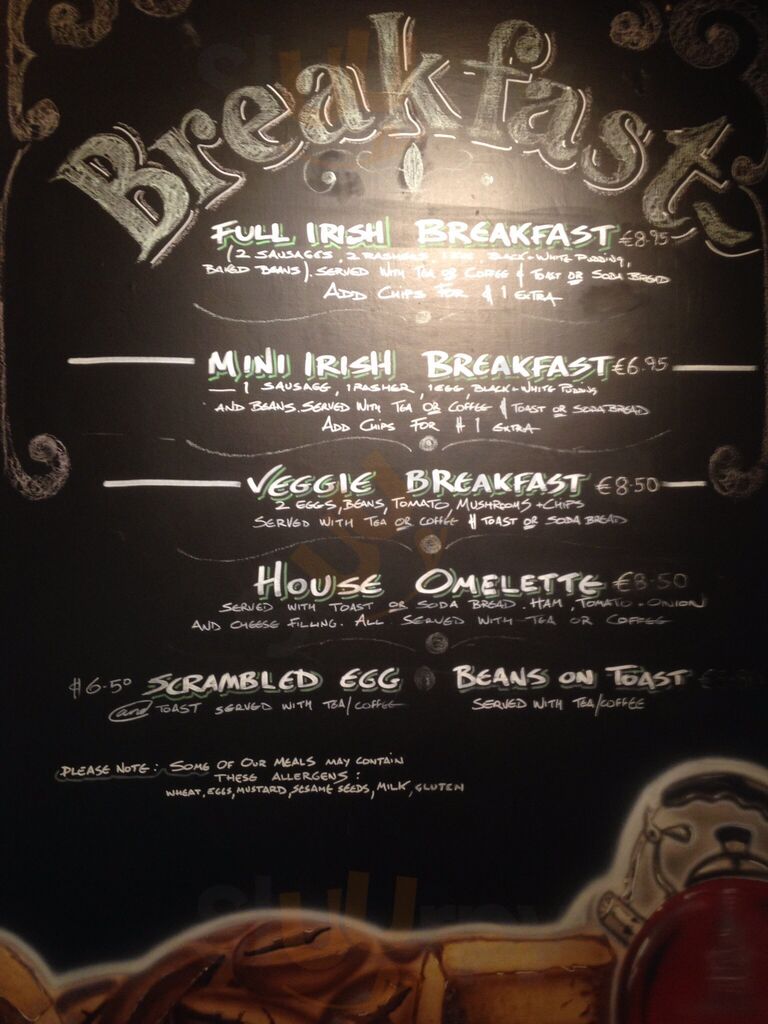 Breakfast
FULL IRISH BREAKFAST €8.95
(2 SAUSAGES, 2 RASHERS, BLACK + WHITE PUDDING,
BAKED BEANS). SERVED WITH TEA OR COFFEE & TOAST OR SODA BREAD
ADD CHIPS FOR €1 EXTRA
MINI IRISH BREAKFAST €6.95
1 SAUSAGE, 1 RASHER, 1 EGG, BLACK + WHITE PUDDING
AND BEANS. SERVED WITH TEA OR COFFEE & TOAST OR SODA BREAD
ADD CHIPS FOR €1 EXTRA
VEGGIE BREAKFAST €8.50
2 EGGS, BEANS, TOMATO, MUSHROOMS + CHIPS
SERVED WITH TEA OR COFFEE & TOAST OR SODA BREAD
HOUSE OMELETTE €8.50
SERVED WITH TOAST OR SODA BREAD. HAM, TOMATO + ONION
AND CHEESE FILLING. ALL SERVED WITH TEA OR COFFEE
€6.50 SCRAMBLED EGG BEANS ON TOAST
and TOAST SERVED WITH TEA/COFFEE SERVED WITH TEA/COFFEE
PLEASE NOTE: SOME OF OUR MEALS MAY CONTAIN
THESE ALLERGENS:
WHEAT, EGGS, MUSTARD, SESAME SEEDS, MILK, GLUTEN